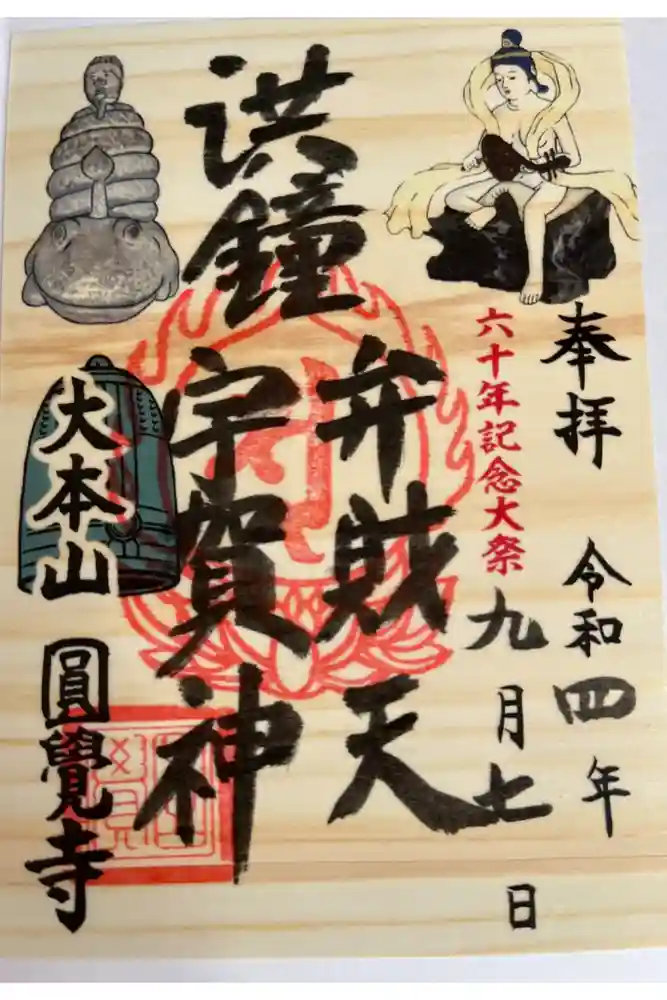 奉拝
令和四年
九月七日
六十年記念大祭
洪鐘
弁財天
宇賀神
大本山
圓覺寺